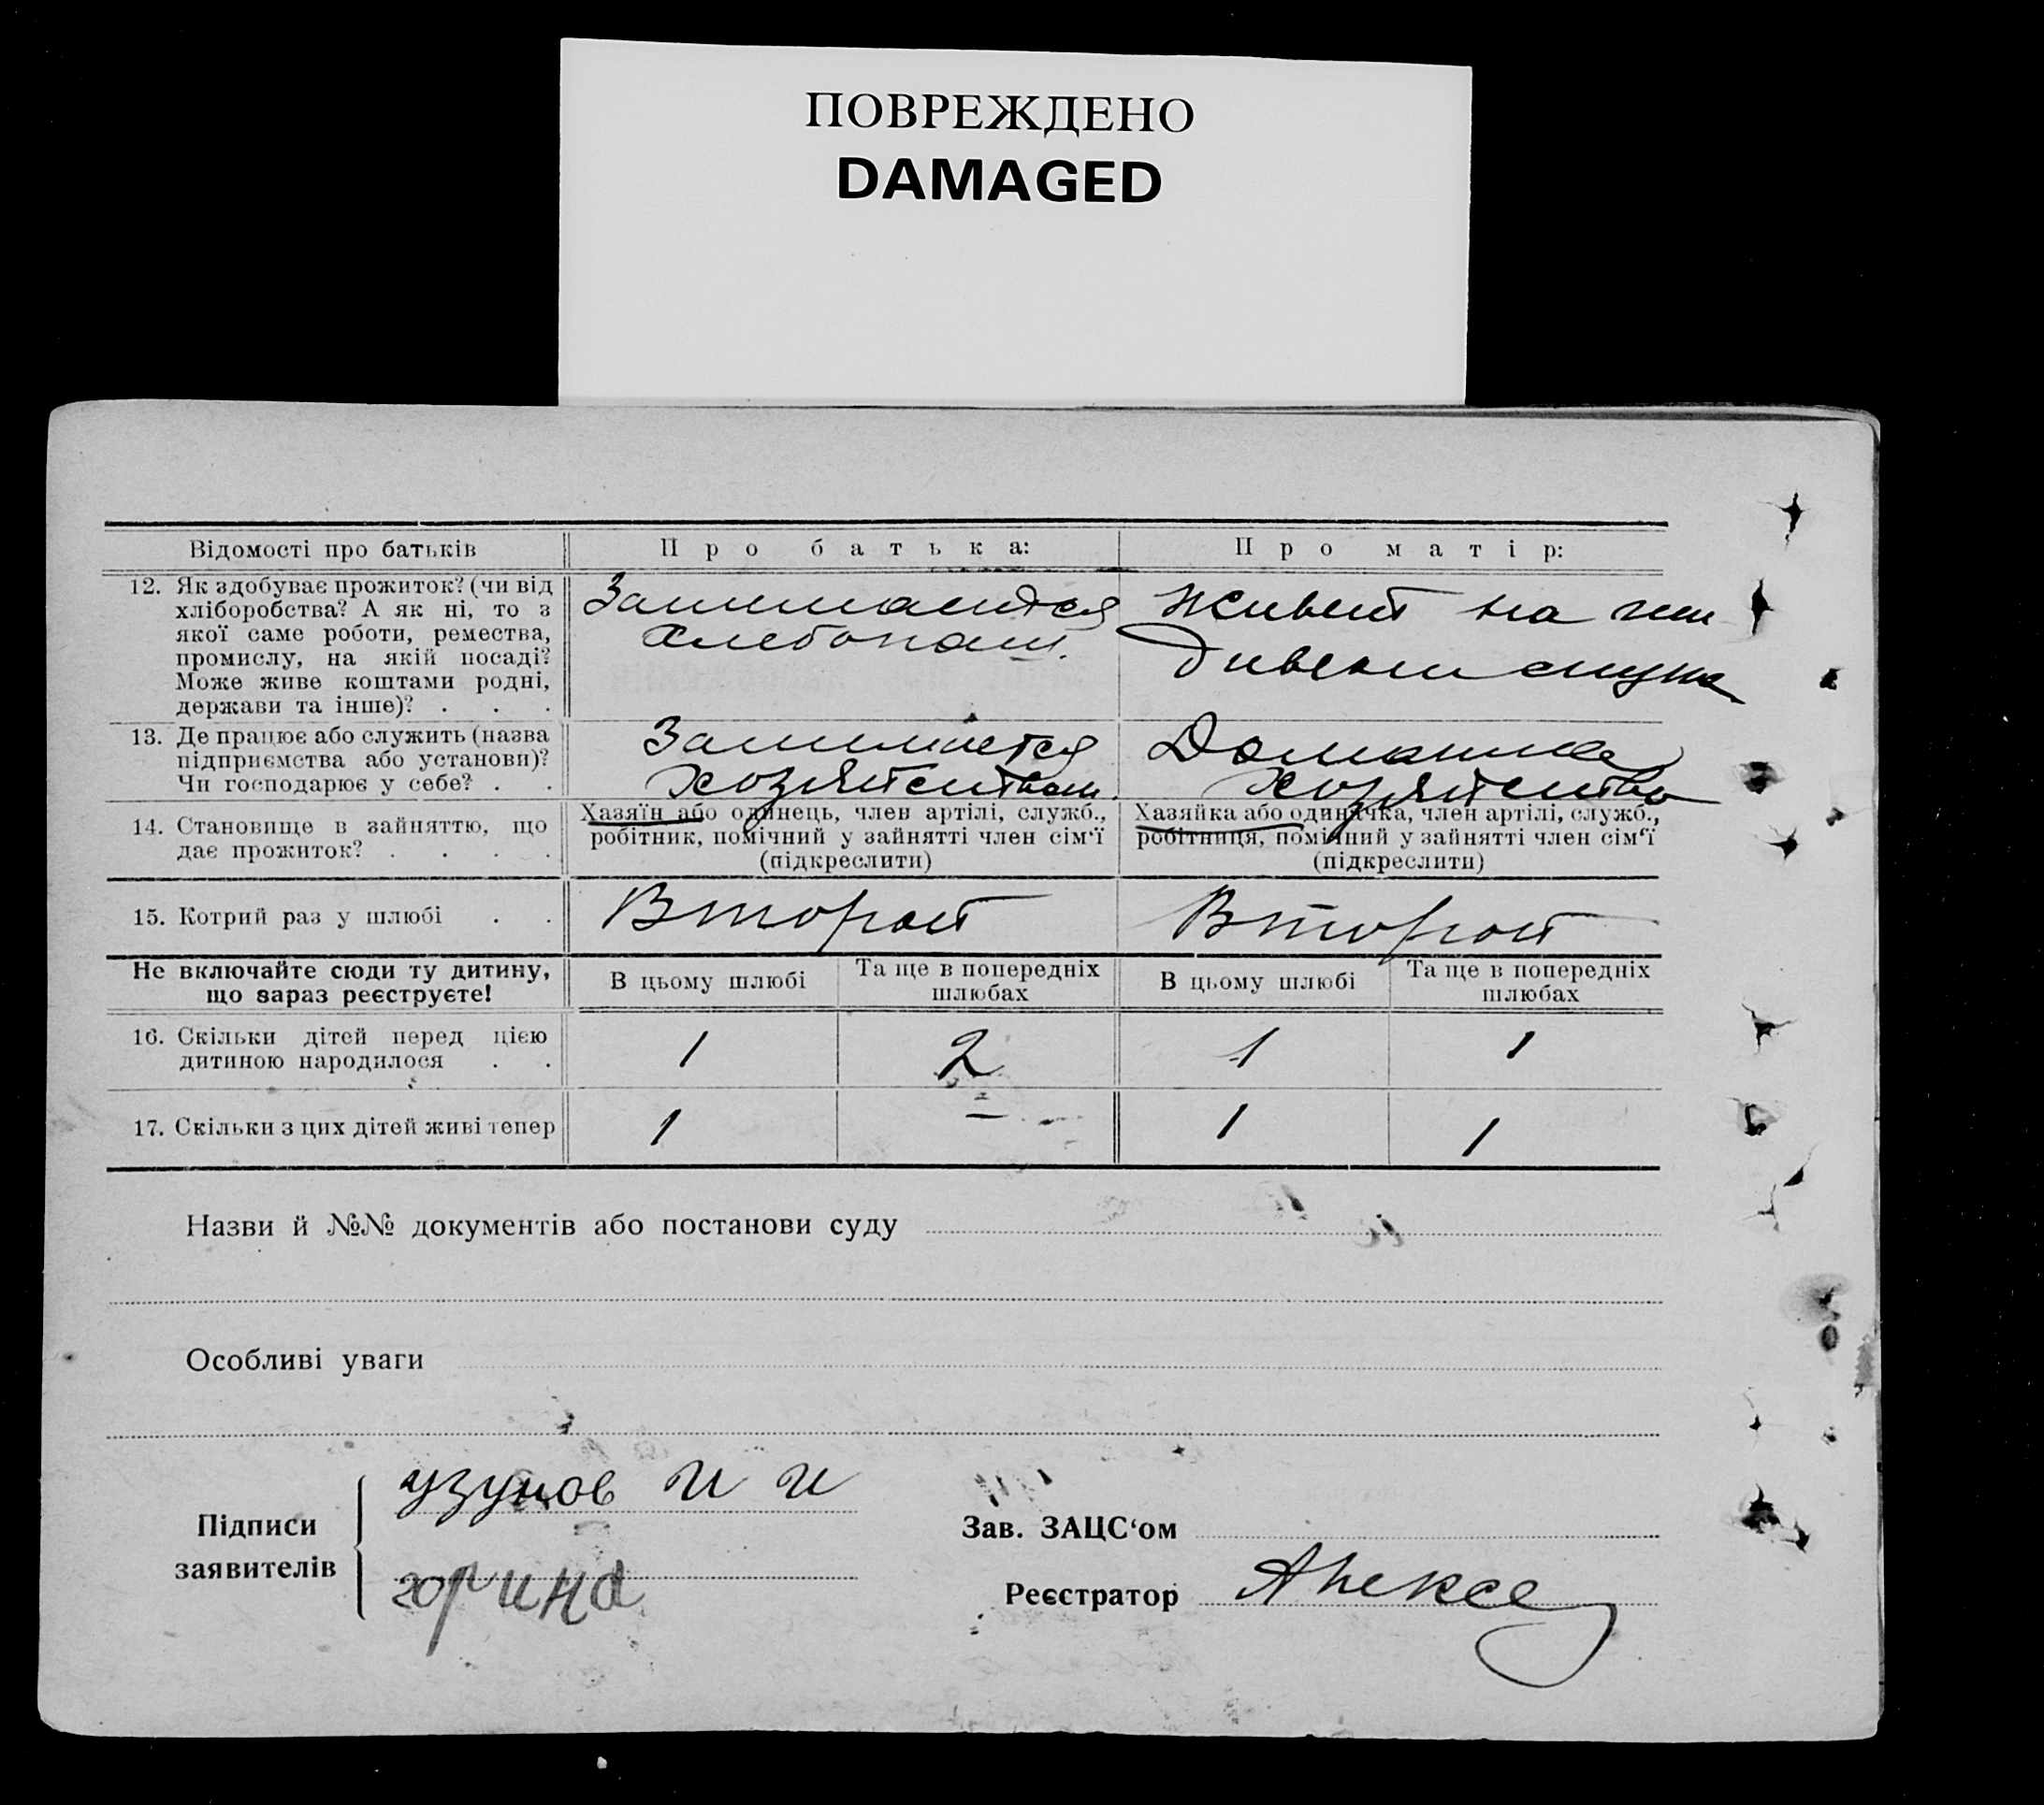 ПОВРЕЖДЕНО
DAMAGED
Відомості про батьків
Про батька:
Про матір:
12. Як здобуває прожиток? (чи від
хліборобства? А як ні, то з
якої саме роботи, ремества,
промислу, на якій посаді?
Може живе коштами родні,
держави та інше)? . . .
Занимается
хлебопаш.
Живет на иж
дивении мужа
13. Де працює або служить (назва
підприємства або установи)?
Чи господарює у себе? . .
Занимается
хозяйством
Домашнее
хозяйство
14. Становище в зайняттю, що
дає прожиток? . . . .
Хазяїн або одинець, член артілі, служб.,
робітник, помічний у зайнятті член сім'ї
(підкреслити)
Хазяйка або одиначка, член артілі, служб.,
робітниця, помічний у зайнятті член сім'ї
(підкреслити)
15. Котрий раз у шлюбі . .
Второй
Второй
Не включайте сюди ту дитину,
що зараз реєструєте!
В цьому шлюбі
Та ще в попередніх
шлюбах
В цьому шлюбі
Та ще в попередніх
шлюбах
16. Скільки дітей перед цією
дитиною народилося . .
1 2 1 1
17. Скільки з цих дітей живі тепер
1 — 1 1
Назви й №№ документів або постанови суду
Особливі уваги
Підписи
заявителів
узунов и и
горина
Зав. ЗАЦС'ом
Реєстратор
Алексе